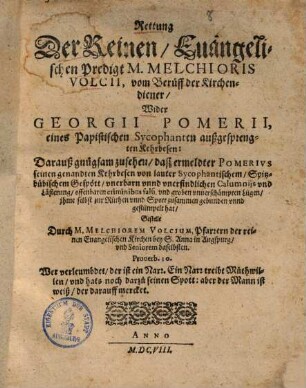 Rettung
Der Reinen / Euāngeli-
schen Predigt M. MELCHIORIS
VOLCII, vom Berüff der Kirchen-
diener /
Wider
GEORGII POMERII,
eines Papistischen Sycophanten außgespreng-
ten Kehrbesen:
Darauß gnůgsam zusehen / daß ermeldter POMERIVS
seinen genandten Kehrbesen von lauter Sycophantischem / Spitz-
bübischem Gespött / vnerbarn vnnd vnerfindlichen Calumniis vnd
Lästerung / offenbarem
vnd groben vnuerschämpten Lügen /
ihme selbst zur Růthen vnnd Spott zusammen gebunden vnnd
gestümpelt hat /
Gestelt
Durch M. MELCHIOREM VOLCIUM, Pfarrern der rei-
nen Euangelischen Kirchen bey S. Anna in Augspurg /
vnd Seniorem daselbsten.
Prouerb. 10.
Wer verleumbdet / der ist ein Narr. Ein Narr treibt Můthwil-
len / vnd hats noch darzů seinen Spott: aber der Mann ist
weiß / der darauff mercket.
ANNO
M.DC.VIII.